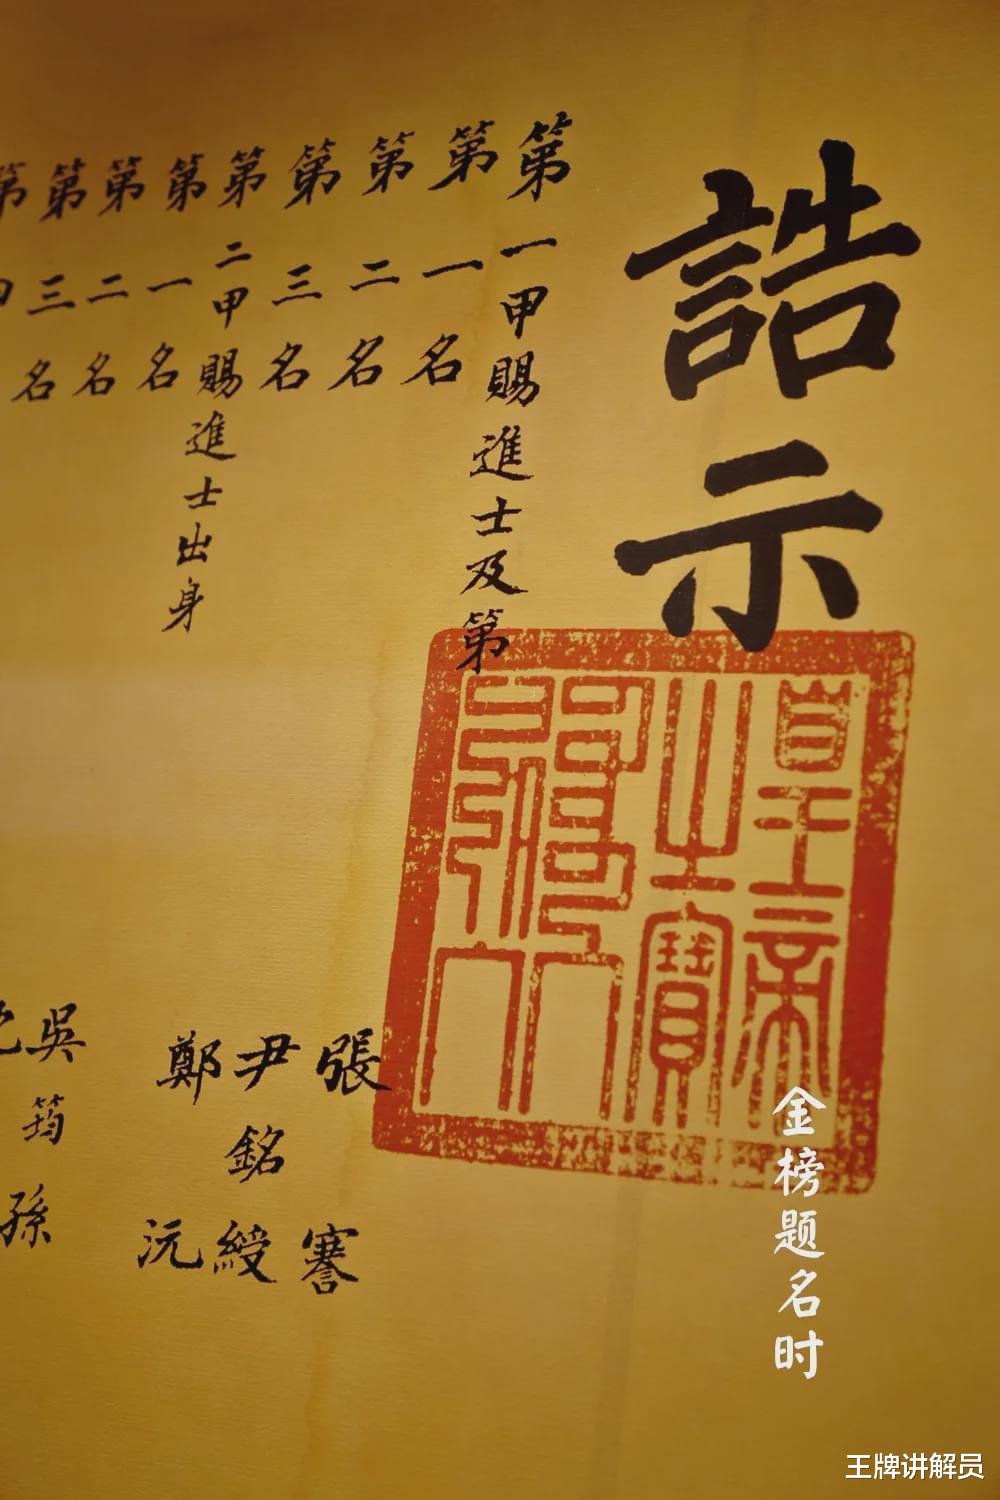 誥示
皇帝
之寶
第一甲賜進士及第
第一名 張謇
第二名 尹銘綬
第三名 鄭沅
第二甲賜進士出身
第一名 吳筠孫
第二名
第三名
金榜题名时
王牌讲解员